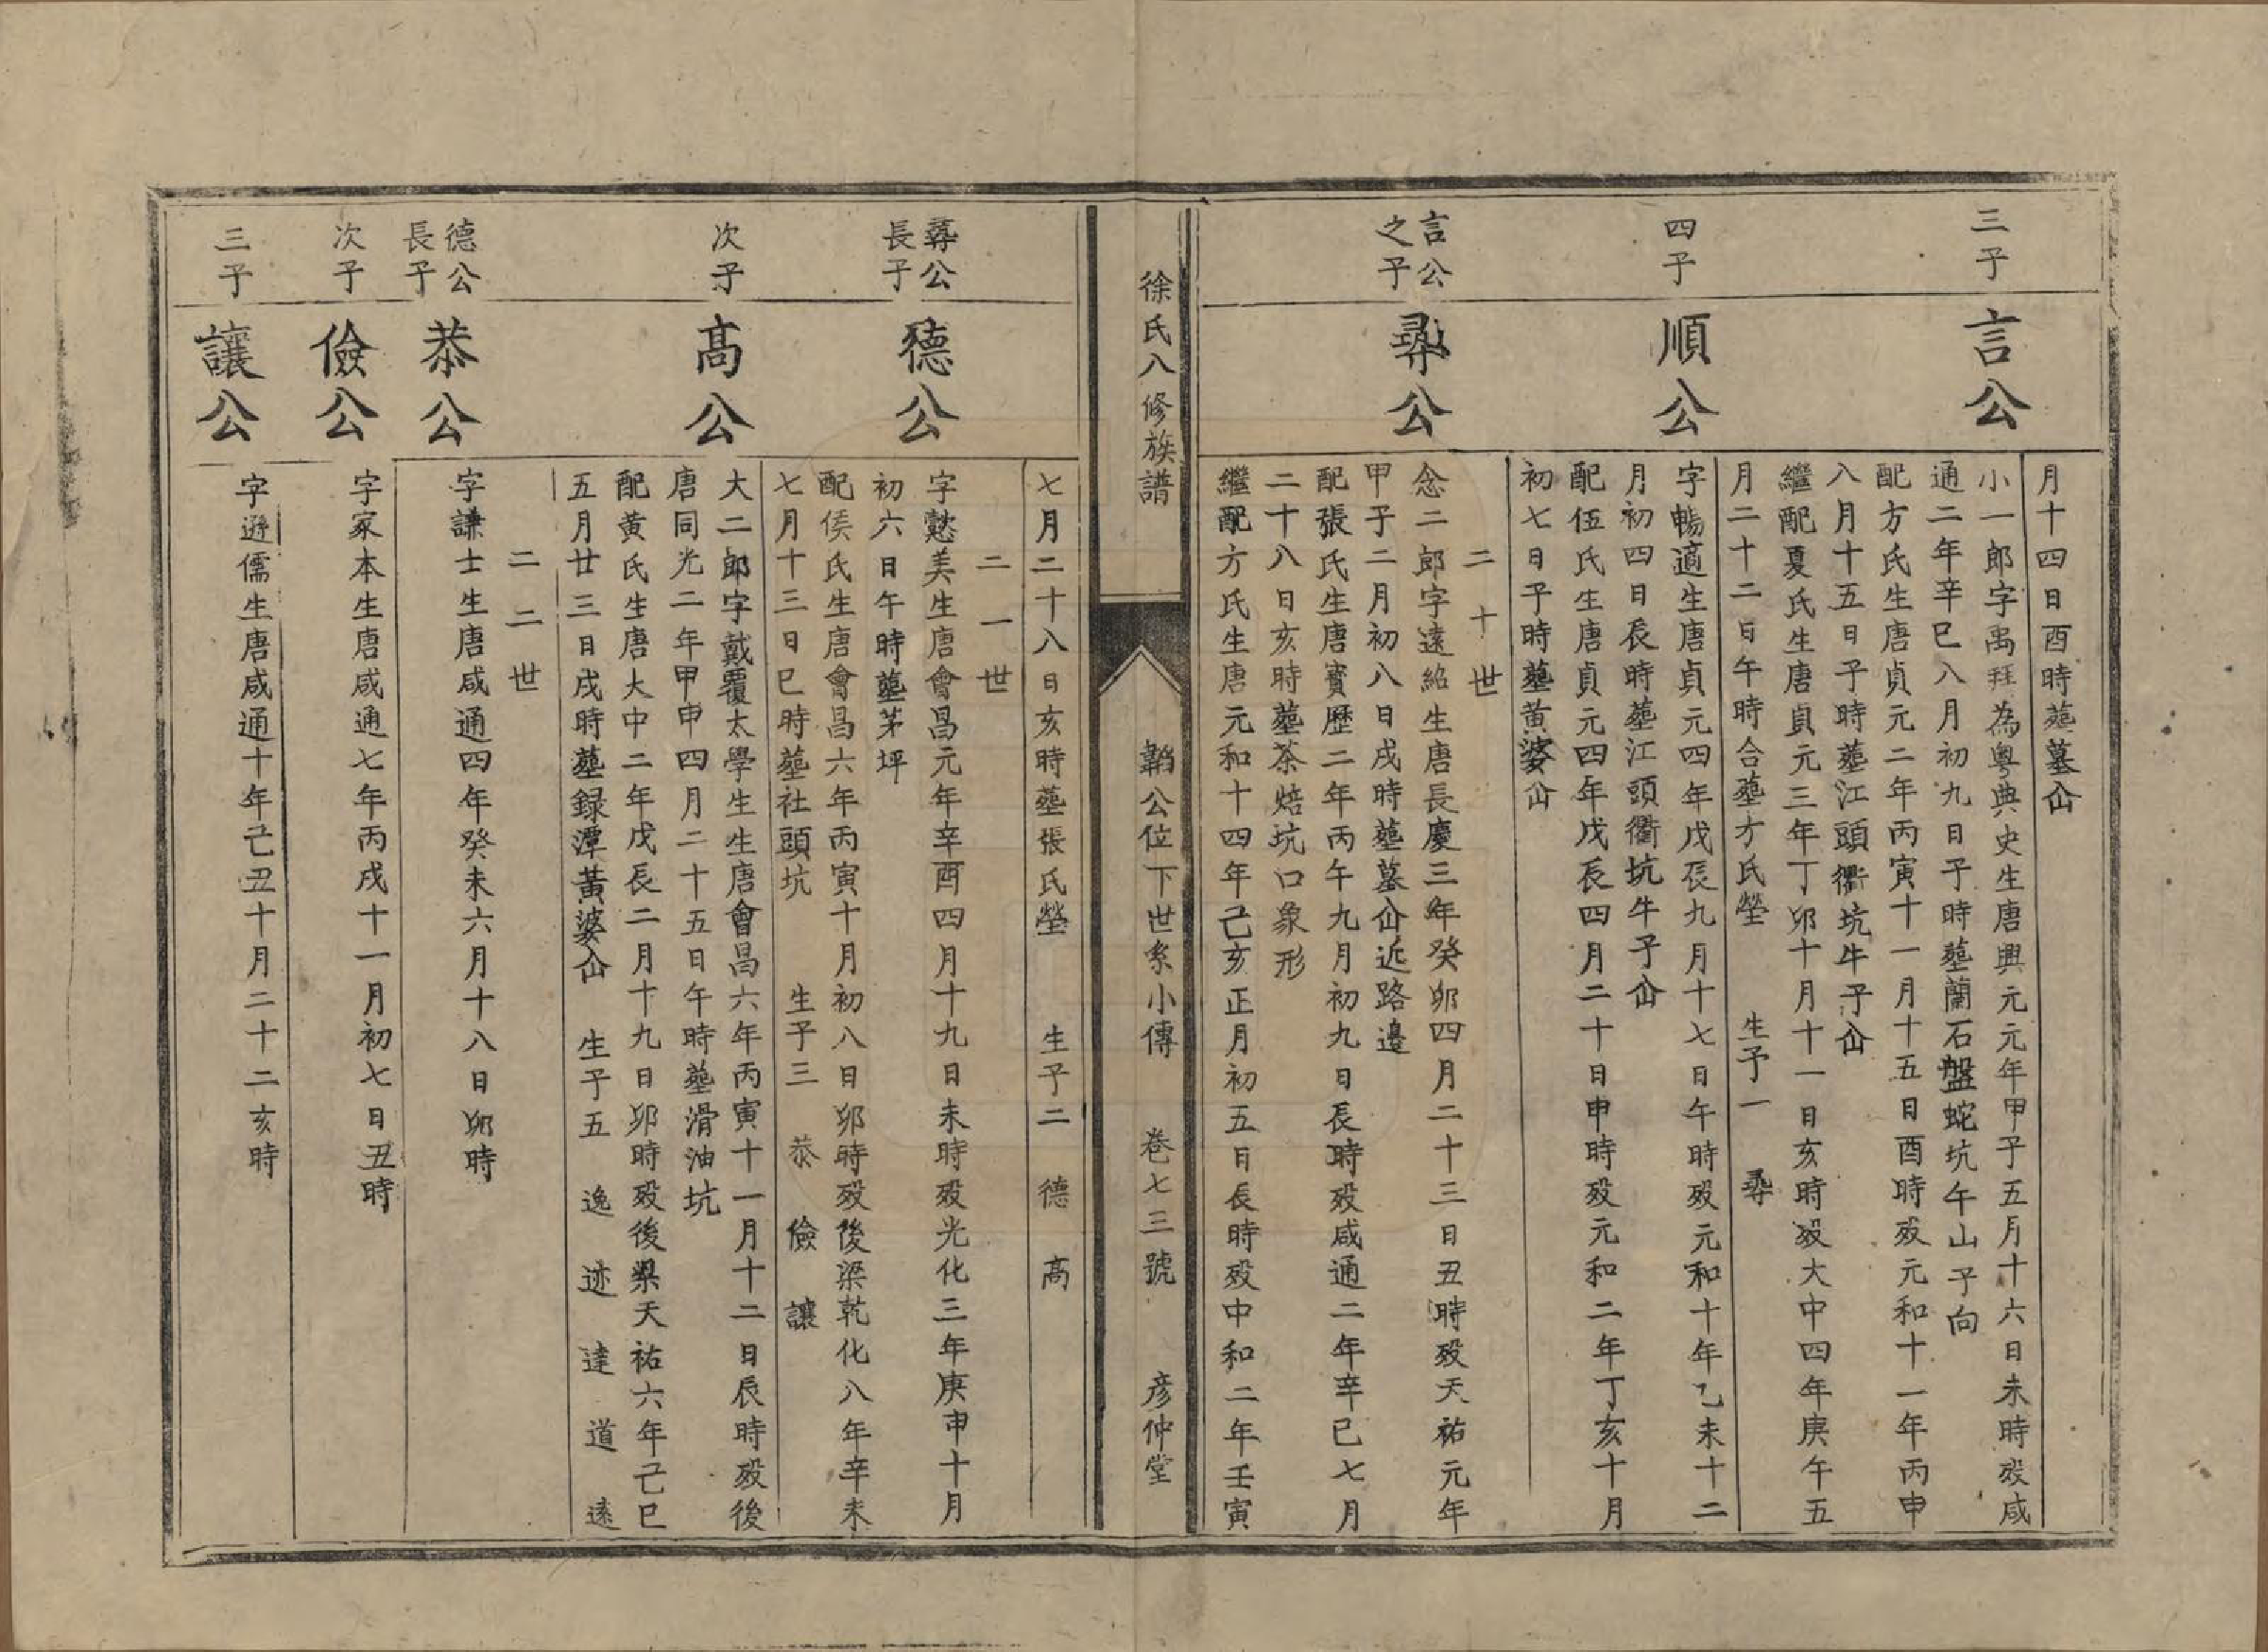 月十四日酉時塟墓仚
三子
言公
小一郎字禹拜為粵典史生唐興元元年甲子五月十六日未時殁咸
通二年辛巳八月初九日子時塟蘭石盤蛇坑午山子向
配方氏生唐貞元二年丙寅十一月十五日酉時殁元和十一年丙申
八月十五日子時塟江頭衢坑牛子仚
繼配夏氏生唐貞元三年丁卯十月十一日亥時殁大中四年庚午五
月二十二日午時合塟方氏塋 生子一 㝷
四子
順公
字暢適生唐貞元四年戊辰九月十七日午時殁元和十年乙未十二
月初四日辰時塟江頭衢坑牛子仚
配伍氏生唐貞元四年戊辰四月二十日申時殁元和二年丁亥十月
初七日子時塟黄婆仚
二十世
言公之子
㝷公
念二郎字遠紹生唐長慶三年癸卯四月二十三日丑時殁天祐元年
甲子二月初八日戌時塟墓仚近路邊
配張氏生唐寶歷二年丙午九月初九日辰時殁咸通二年辛巳七月
二十八日亥時塟茶焙坑口象形
繼配方氏生唐元和十四年己亥正月初五日辰時殁中和二年壬寅
徐氏八修族譜
韜公位下世系小傳
卷七三號
彦仲堂
七月二十八日亥時塟張氏塋 生子二 德 高
二一世
㝷公長子
德公
字懿美生唐會昌元年辛酉四月十九日未時殁光化三年庚申十月
初六日午時塟茅坪
配侯氏生唐會昌六年丙寅十月初八日卯時殁後梁乾化八年辛未
七月十三日巳時塟社頭坑 生子三 恭 儉 讓
次子
高公
大二郎字戴覆太學生生唐會昌六年丙寅十一月十二日辰時殁後
唐同光二年甲申四月二十五日午時塟滑油坑
配黄氏生唐大中二年戊辰二月十九日卯時殁後梁天祐六年己巳
五月廿三日戌時塟録潭黄婆仚 生子五 逸 迹 達 道 遠
二二世
德公長子
恭公
字謙士生唐咸通四年癸未六月十八日卯時
次子
儉公
字家本生唐咸通七年丙戌十一月初七日丑時
三子
讓公
字遜儒生唐咸通十年己丑十月二十二亥時